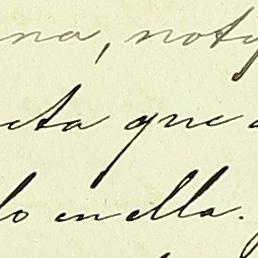 na, noti
cta que
lo en ella.